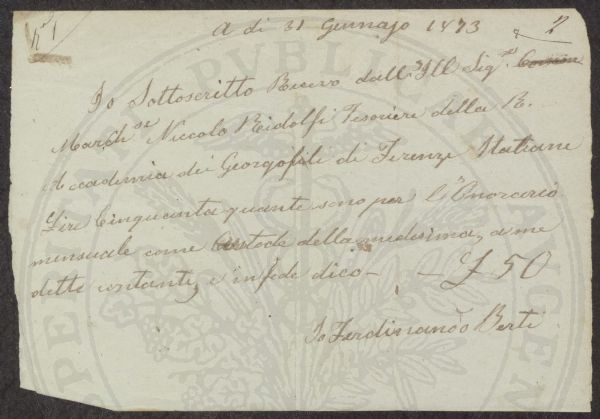 N° 1
A di 31 Gennajo 1873
2
Io Sottoscritto Ricevo dall Ill Sig.re
March.se Niccolo Ridolfi Tesoriere della R.
Accademia dei Georgofili di Firenze Italiane
Lire Cinquanta quante sono per l'Onorario
mensuale come Custode della medesima, a me
dette contanti, e in fede dico — — £ 50
Io Ferdinando Berti
PVBLIC